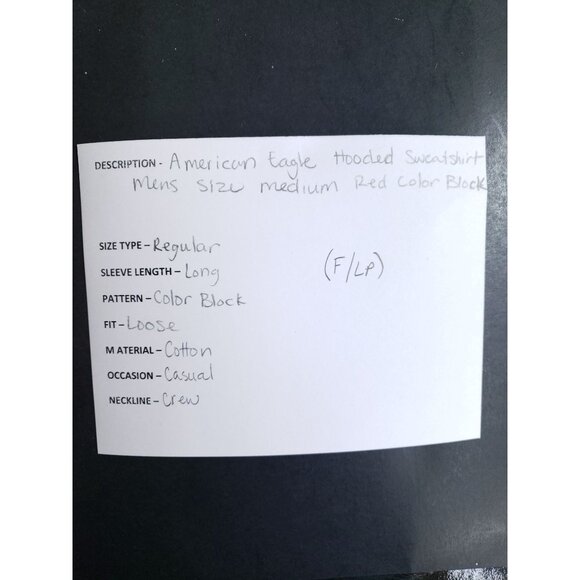 DESCRIPTION - American Eagle Hooded Sweatshirt
Mens Size medium Red Color Block
SIZE TYPE – Regular
SLEEVE LENGTH – Long
(F/LP)
PATTERN – Color Block
FIT – Loose
MATERIAL – Cotton
OCCASION – Casual
NECKLINE – Crew